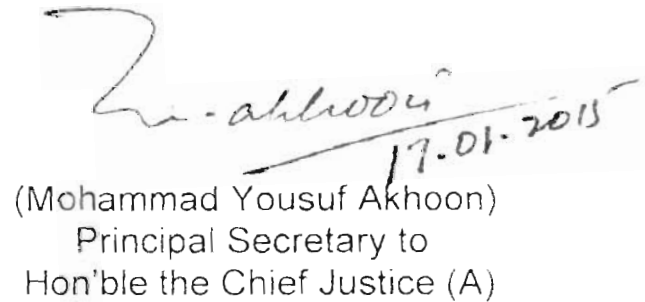 akhoon
17.01.2015
(Mohammad Yousuf Akhoon)
Principal Secretary to
Hon'ble the Chief Justice (A)